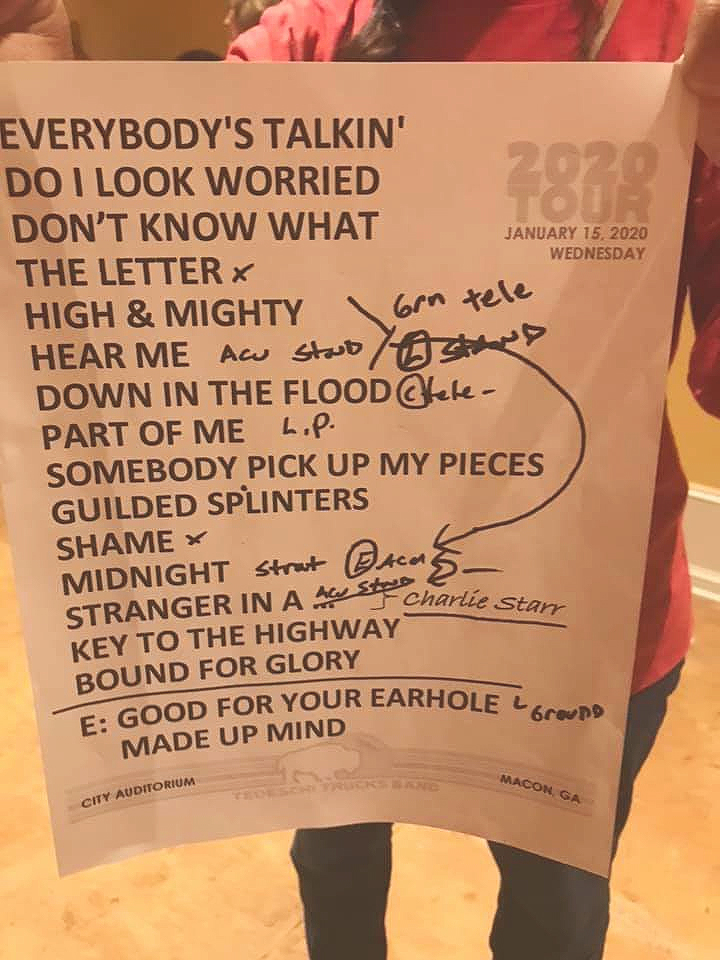 EVERYBODY'S TALKIN'
DO I LOOK WORRIED
DON'T KNOW WHAT
THE LETTER x
HIGH & MIGHTY
Grn tele
HEAR ME Acu Stand
E STAND
DOWN IN THE FLOOD C tele -
PART OF ME L.P.
SOMEBODY PICK UP MY PIECES
GUILDED SPLINTERS
SHAME x
MIDNIGHT Strat E Acu
STRANGER IN A ... Acu Stand
Charlie Starr
KEY TO THE HIGHWAY
BOUND FOR GLORY
E: GOOD FOR YOUR EARHOLE Ground
MADE UP MIND
2020
TOUR
JANUARY 15, 2020
WEDNESDAY
CITY AUDITORIUM
TEDESCHI TRUCKS BAND
MACON, GA